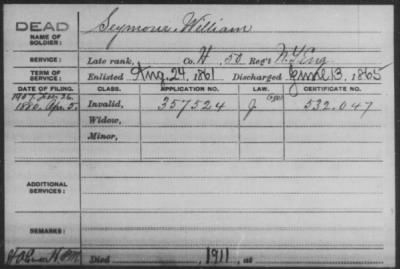 DEAD
NAME OF SOLDIER: Seymour, William
SERVICE: Late rank, Co. H, 50 Reg't N.Y. Eng.
TERM OF SERVICE: Enlisted Aug. 24, 1861 Discharged June 13, 1865
DATE OF FILING. CLASS. APPLICATION NO. LAW. CERTIFICATE NO.
1880, Apr. 5. Invalid, 357524 J 532.047
Widow,
Minor,
ADDITIONAL SERVICES:
REMARKS:
Died , 1911, at